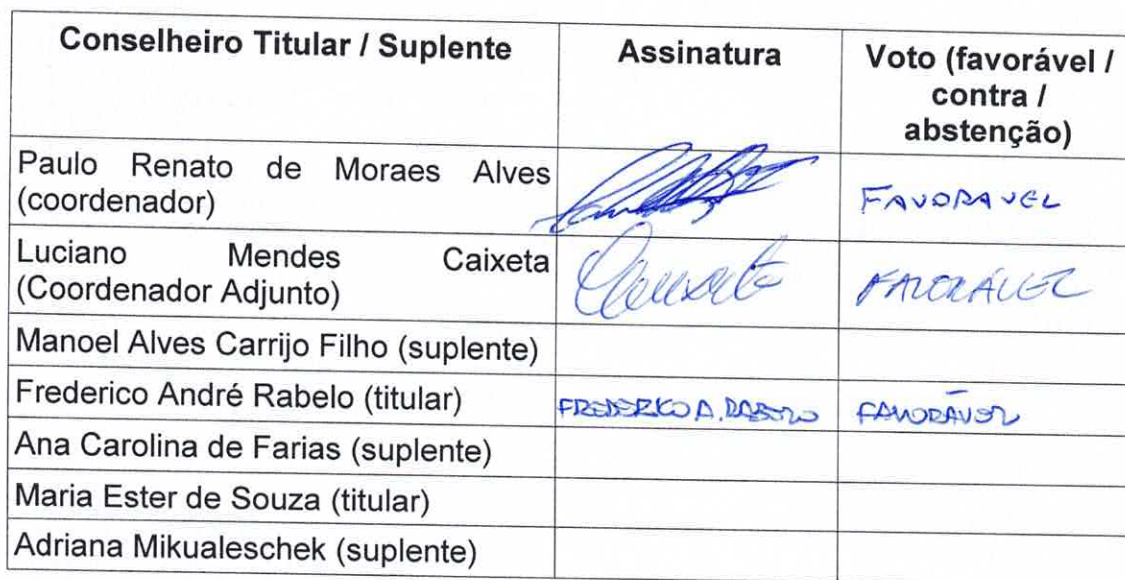 Conselheiro Titular / Suplente Assinatura Voto (favorável /
contra /
abstenção)
Paulo Renato de Moraes Alves
(coordenador) FAVORAVEL
Luciano Mendes Caixeta
(Coordenador Adjunto) FAVORÁVEL
Manoel Alves Carrijo Filho (suplente)
Frederico André Rabelo (titular) FREDERICO A. RABELO FAVORÁVEL
Ana Carolina de Farias (suplente)
Maria Ester de Souza (titular)
Adriana Mikualeschek (suplente)